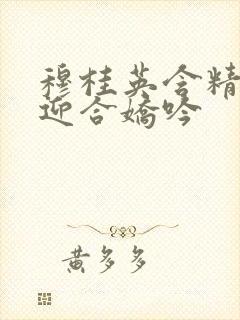 穆桂英含精
迎合娇吟
黄多多